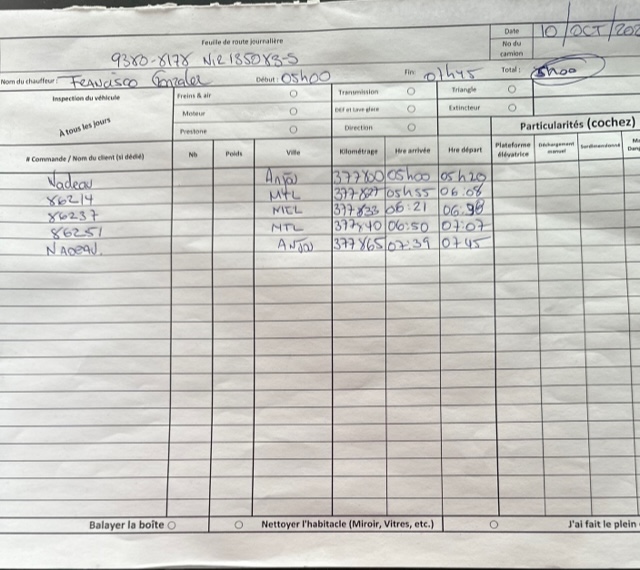 Feuille de route journalière
Date 10/OCT/202
No du camion
9380-8178 NIR 135083-5
Nom du chauffeur: Francisco Gonzalez Début: 05h00 Fin: 07h45 Total: 5h00
Inspection du véhicule
A tous les jours
Freins & air Transmission Triangle
Moteur Extincteur
Prestone Direction
Particularités (cochez)
# Commande / Nom du client (si dédié) Nb Poids Ville Kilométrage Hre arrivée Hre départ Plateforme élévatrice Déchargement manuel
Nadeau Anjou 377800 05h00 05h20
86214 MTL 377827 05h55 06:08
86237 MTL 377833 06:21 06:98
86251 MTL 377840 06:50 07:07
Nadeau. Anjou 377865 07:39 0745
Balayer la boîte Nettoyer l'habitacle (Miroir, Vitres, etc.) J'ai fait le plein